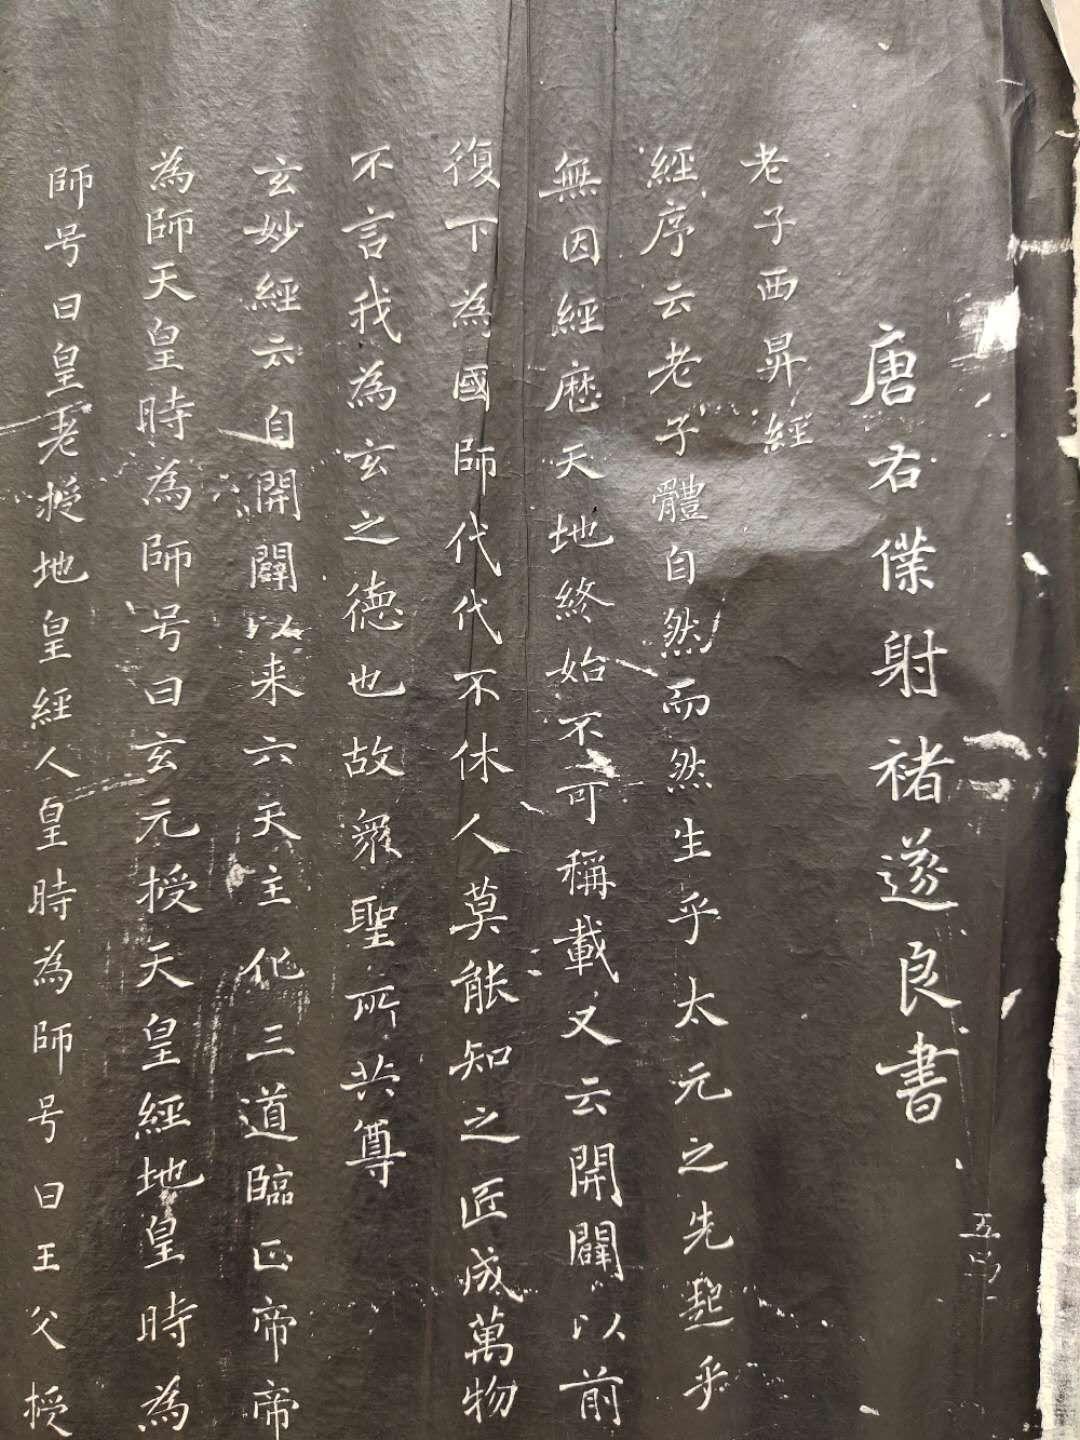 唐右僕射褚遂良書
老子西昇經
經序云老子體自然而然生乎太元之先起乎
無因經歷天地終始不可稱載又云開闢以前
復下為國師代代不休人莫能知之匠成萬物
不言我為玄之德也故眾聖所共尊
玄妙經云自開闢以来六天主化三道臨正帝帝
為師天皇時為師号曰玄元授天皇經地皇時為
師号曰皇老授地皇經人皇時為師号曰王父授